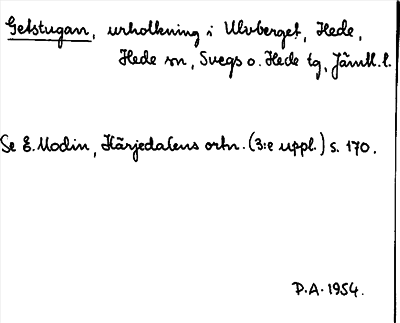 Getstugan, urholkning i Ulvberget, Hede,
Hede sn, Svegs o. Hede tg, Jämtl. l.
Se E. Modin, Härjedalens ortn. (3:e uppl.) s. 170.
P.A. 1954.